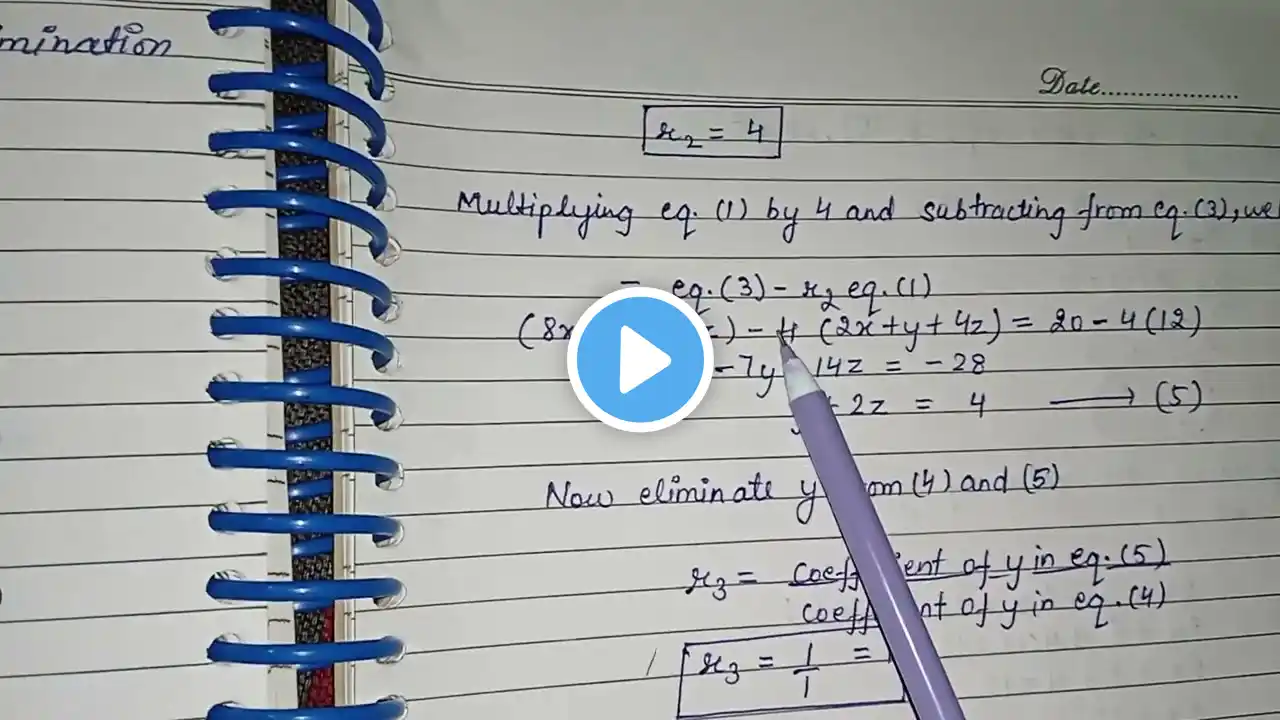 mination
Date
r₂ = 4
Multiplying eq. (1) by 4 and subtracting from eq. (3), we
= eq. (3) - r₂ eq. (1)
(8x ) - 4 (2x + y + 4z) = 20 - 4 (12)
-7y 14z = -28
+ 2z = 4 → (5)
Now eliminate y (4) and (5)
r₃ = coefficient of y in eq. (5)
coefficient of y in eq. (4)
r₃ = 1/1 =